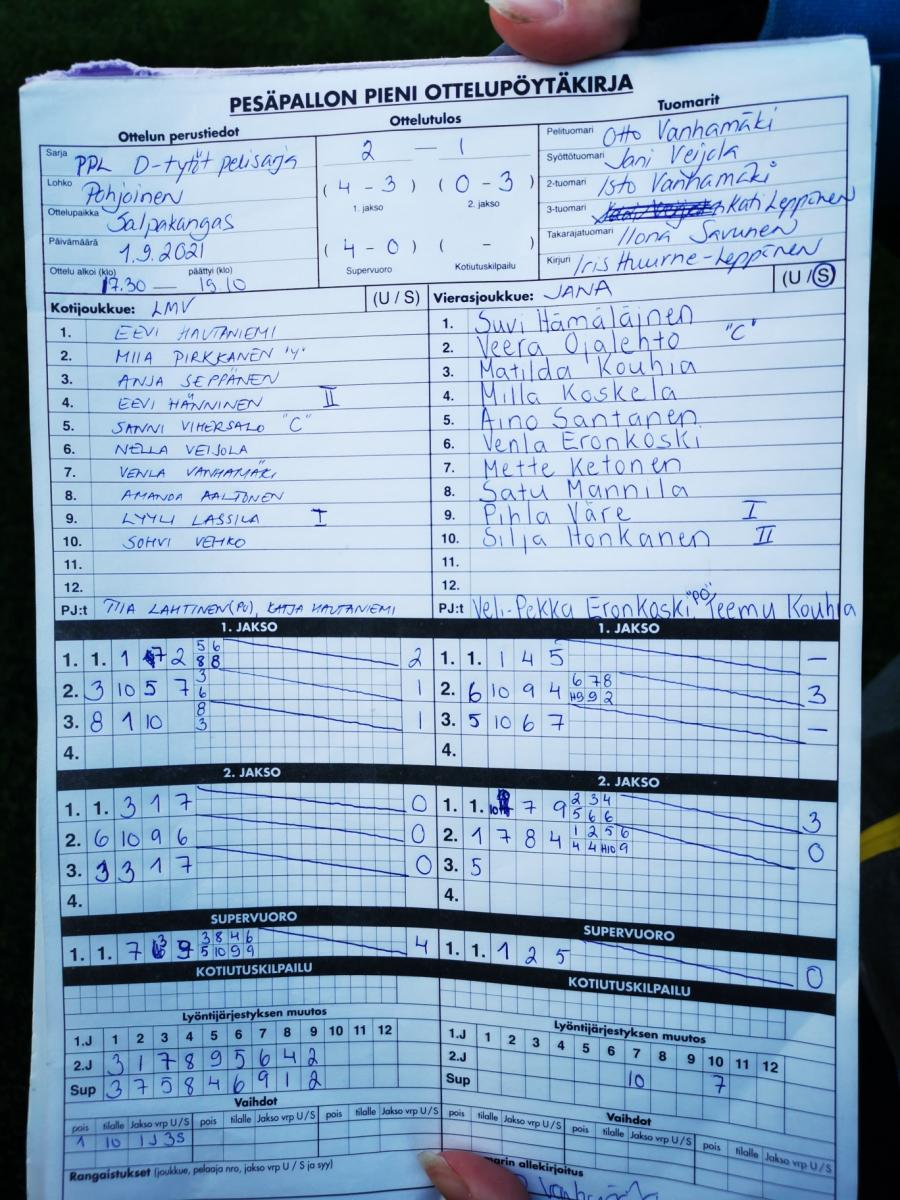 PESÄPALLON PIENI OTTELUPÖYTÄKIRJA
Ottelun perustiedot
Sarja PPL D-tytöt pelisarja
Lohko Pohjoinen
Ottelupaikka Salpakangas
Päivämäärä 1.9.2021
Ottelu alkoi (klo) päättyi (klo)
17.30 — 19.10
Ottelutulos
2 — 1
( 4 - 3 ) ( 0 - 3 )
1. jakso 2. jakso
( 4 - 0 ) ( - )
Supervuoro Kotiutuskilpailu
Tuomarit
Pelituomari Otto Vanhamäki
Syöttötuomari Jani Veijola
2-tuomari Isto Vanhamäki
3-tuomari Kati Leppänen
Takarajatuomari Ilona Savunen
Kirjuri Iris Huurne-Leppänen
Kotijoukkue: LMV (U / S)
1. EEVI HAUTANIEMI
2. MIIA PIRKKANEN "V"
3. ANJA SEPPÄNEN
4. EEVI HÄNNINEN II
5. SANNI VIHERSALO "C"
6. NELLA VEIJOLA
7. VENLA VANHAMÄKI
8. AMANDA AALTONEN
9. LYYLI LASSILA I
10. SOHVI VEHKO
11.
12.
PJ:t TIIA LAHTINEN(PO), KATJA HAUTANIEMI
Vierasjoukkue: JANA (U / S)
1. Suvi Hämäläinen
2. Veera Ojalehto "C"
3. Matilda Kouhia
4. Milla Koskela
5. Aino Santanen
6. Venla Eronkoski
7. Mette Ketonen
8. Satu Mannila
9. Pihla Väre I
10. Silja Honkanen II
11.
12.
PJ:t Veli-Pekka Eronkoski "PO", Teemu Kouhia
1. JAKSO
1. 1. 1 7 2 5 6 2
8 8
2. 3 10 5 7 3 1
6
3. 8 1 10 8 1
3
4.
1. JAKSO
1. 1. 1 4 5 —
2. 6 10 9 4 6 7 8 3
H9 9 2
3. 5 10 6 7 —
4.
2. JAKSO
1. 1. 3 1 7 0
2. 6 10 9 6 0
3. 3 3 1 7 0
4.
2. JAKSO
1. 1. 10 7 9 2 3 4 3
5 6 6
2. 1 7 8 4 1 2 5 6 0
4 4 H10 9
3. 5
4.
SUPERVUORO
1. 1. 7 3 9 3 8 4 6 4
5 10 9 9
SUPERVUORO
1. 1. 1 2 5 0
KOTIUTUSKILPAILU
KOTIUTUSKILPAILU
Lyöntijärjestyksen muutos
1.J 1 2 3 4 5 6 7 8 9 10 11 12
2.J 3 1 7 8 9 5 6 4 2
Sup 3 7 5 8 4 6 9 1 2
Lyöntijärjestyksen muutos
1.J 1 2 3 4 5 6 7 8 9 10 11 12
2.J
Sup 10 7
Vaihdot
pois tilalle Jakso vrp U/S pois tilalle Jakso vrp U/S pois tilalle Jakso vrp U/S
1 10 1J 3S
Vaihdot
pois tilalle Jakso vrp U/S pois tilalle Jakso vrp U/S pois tilalle Jakso vrp U/S
Rangaistukset (joukkue, pelaaja nro, jakso vrp U / S ja syy)
allekirjoitus